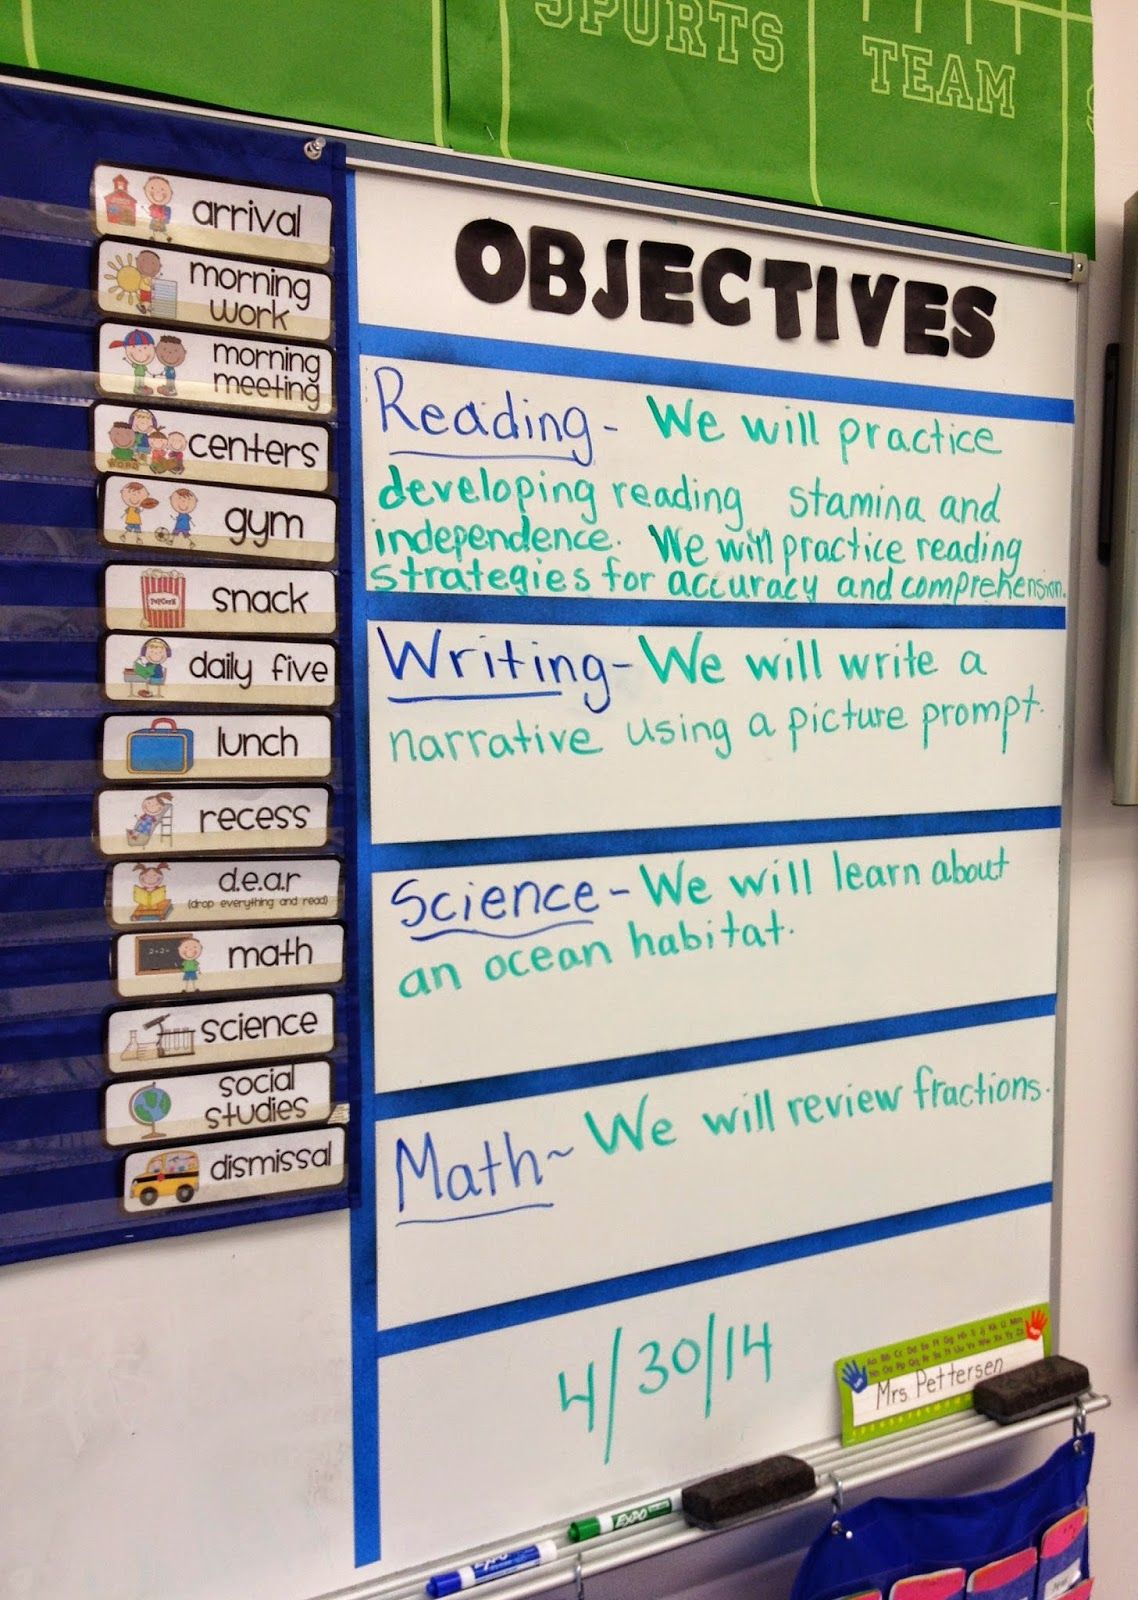 SPORTS
TEAM
arrival
morning
work
morning
meeting
centers
gym
snack
POPCORN
daily five
lunch
recess
d.e.a.r
(drop everything and read)
math
science
social
studies
dismissal
OBJECTIVES
Reading- We will practice
developing reading stamina and
independence. We will practice reading
strategies for accuracy and comprehension.
Writing- We will write a
narrative using a picture prompt.
Science- We will learn about
an ocean habitat.
Math~ We will review fractions.
4/30/14
Mrs. Pettersen
EXPO
EXPO